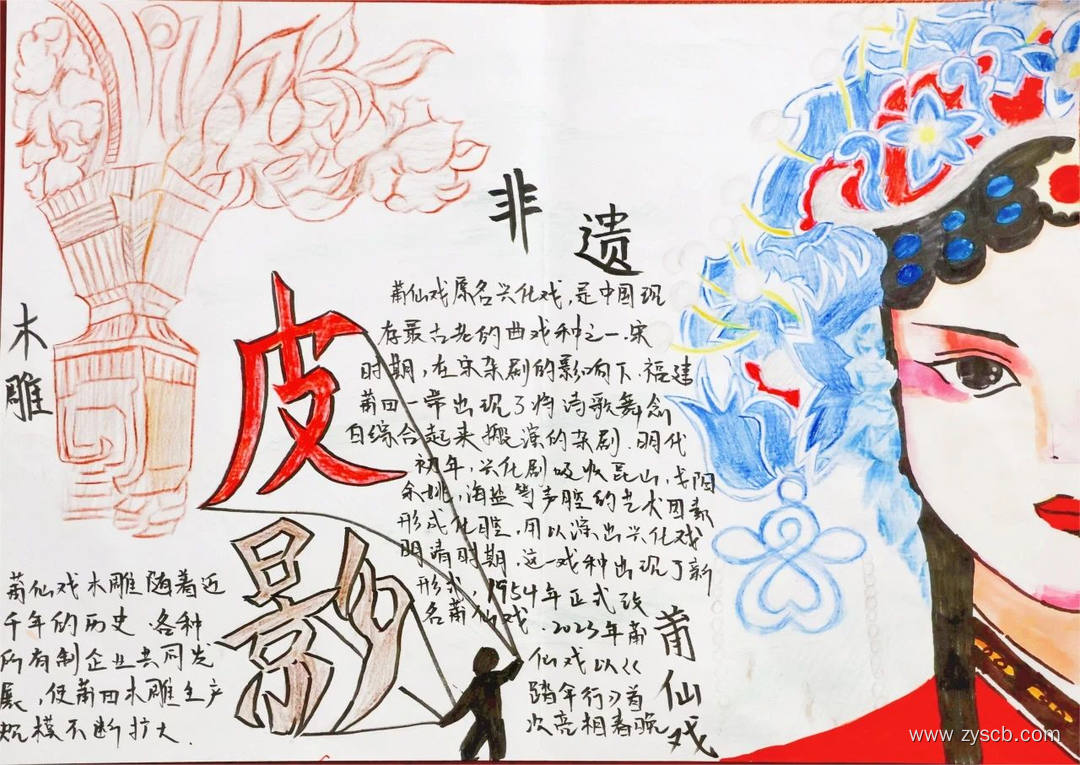 非遗
木雕
皮影
莆仙戏原名兴化戏，是中国现
存最古老的曲戏种之一.宋
时期，在宋杂剧的影响下.福建
莆田一带出现了将诗歌舞念
白综合起来搬演的杂剧.明代
初年，兴化剧吸收昆山，弋阳
余姚，海盐等声腔的艺术因素
形成化腔，用以演出兴化戏
明清时期，这一戏种出现了新
形式.1954年正式改
名莆仙戏.2023年莆
仙戏以<<
踏伞行>首
次亮相春晚
莆仙戏
莆仙戏木雕随着近
千年的历史.各种
所有制企业共同发
展，使莆田木雕生产
规模不断扩大.
www.zyscb.com